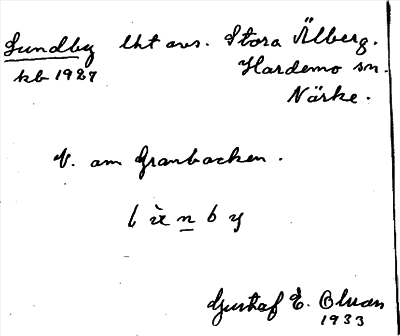 Lundby lht avs. Stora Älberg.
kb 1927 Hardemo sn.
Närke.
V. om Granbacken.
Gustaf E.
1933